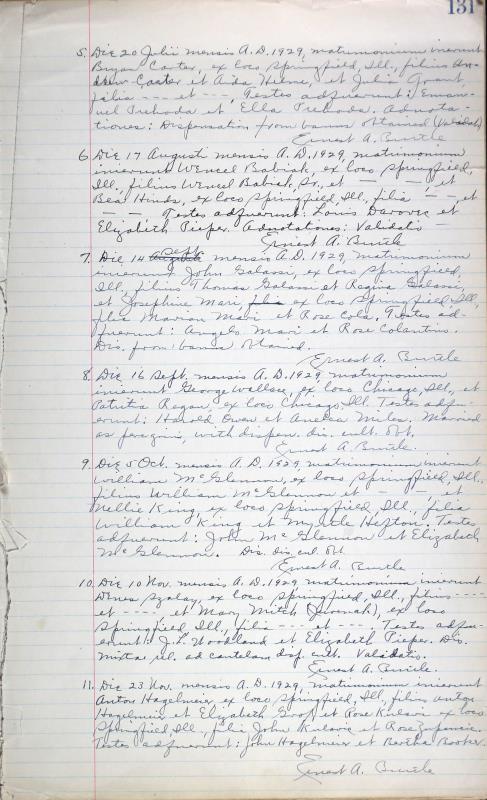 131
5. Die 20 Julii mensis A.D. 1929, matrimonium inierunt
Bryan Carter, ex loco Springfield, Ill., filius An-
drew Carter et Aida Hiene, et Julia Grant,
filia ---- et ---, Testes adfuerunt: Eman-
uel Prehoda et Ella Prehoda. Adnota-
tiones: Dispensation from banns obtained (Validatio)
Ernest A. Burtle
6. Die 17 Augusti mensis A.D. 1929, matrimonium
inierunt Wencel Babiak, ex loco Springfield,
Ill., filius Wencel Babiak, Sr., et — — —, et
Bess Hinds, ex loco Springfield, Ill., filia — —, et
— — Testes adfuerunt: Louis et
Elizabeth Pieper. Adnotationes: Validatio —
Ernest A. Burtle
7. Die 14 Sept. mensis A.D. 1929, matrimonium
inierunt John Galassi, ex loco Springfield,
Ill., filius Thomas Galassi et Regina Galassi,
et Josephine Mari, filia ex loco Springfield, Ill.,
filia Marion Mari et Rose Cola. Testes ad-
fuerunt: Angelo Mari et Rose Colantino.
Dis. from banns obtained.
Ernest A. Burtle
8. Die 16 Sept. mensis A.D. 1929, matrimonium
inierunt George Wallace, ex loco Chicago, Ill., et
Patritia Regan, ex loco Chicago, Ill. Testes adfu-
erunt: Harold Owen et Miles. Married
as peregrini, with dispen. dis. cult. obt.
Ernest A. Burtle.
9. Die 5 Oct. mensis A.D. 1929, matrimonium inierunt
William McGlennon, ex loco Springfield, Ill.,
filius William McGlennon et — — —, et
Nellie King, ex loco Springfield, Ill., filia
William King et Myrtle Hefton. Testes
adfuerunt: John McGlennon et Elizabeth
McGlennon. Dis. dis. cul. obt.
Ernest A. Burtle
10. Die 10 Nov. mensis A.D. 1929, matrimonium inierunt
Denes Szalay, ex loco Springfield, Ill., filius ----
et ---- et Mary Mitch, ex loco
Springfield, Ill., filia ---- et ---. Testes adfu-
erunt: J.L. Woodland et Elizabeth Pieper. Dis.
mixta rel. ad cautelam disp. cult. Validatio.
Ernest A. Burtle.
11. Die 23 Nov. mensis A.D. 1929, matrimonium inierunt
Anton Hagelmeier ex loco Springfield, Ill., filius Anton
Hagelmeier et Elizabeth Graf, et Rose Kulavic ex loco
Springfield, Ill., filia John Kulavic et Rose
Testes adfuerunt: John Hagelmeier et Bertha Booker.
Ernest A. Burtle